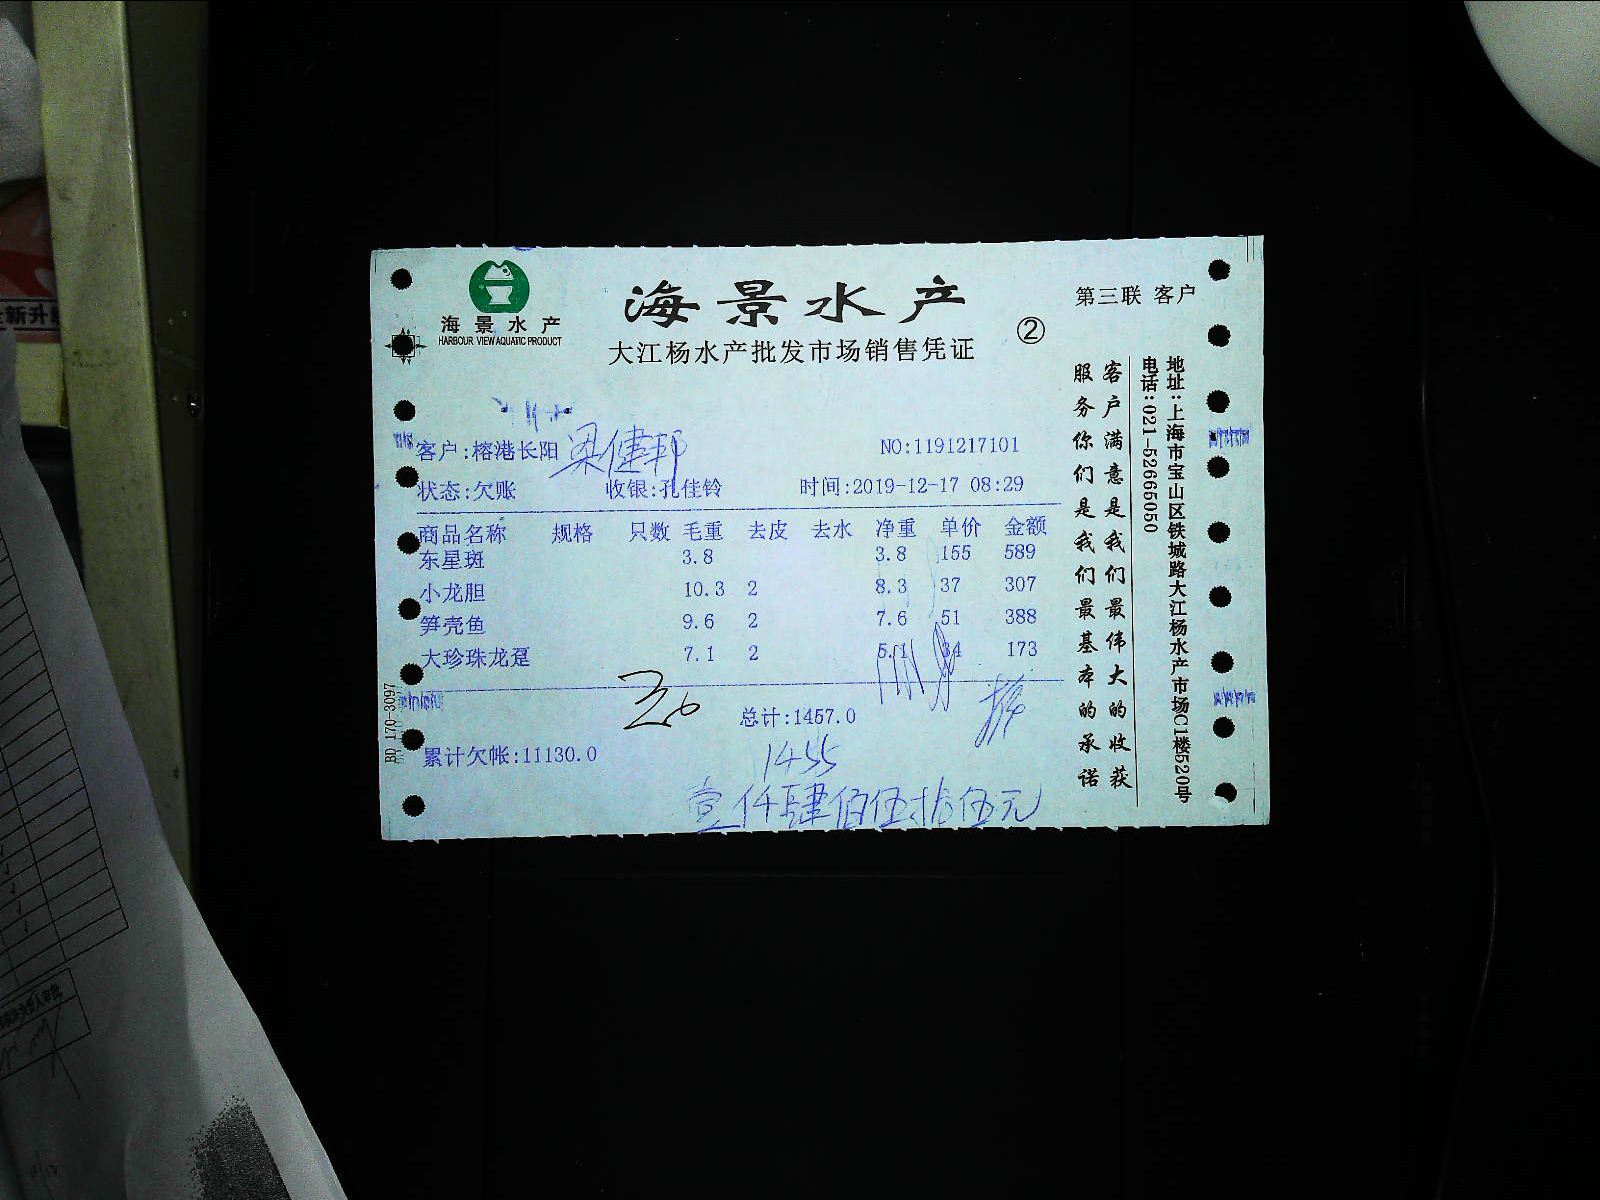 海景水产
HARBOUR VIEW AQUATIC PRODUCT
海景水产
大江杨水产批发市场销售凭证
②
第三联 客户
客户:榕港长阳 梁健邦 NO:1191217101
状态:欠账 收银:孔佳铃 时间:2019-12-17 08:29
商品名称 规格 只数 毛重 去皮 去水 净重 单价 金额
东星斑 3.8 3.8 155 589
小龙胆 10.3 2 8.3 37 307
笋壳鱼 9.6 2 7.6 51 388
大珍珠龙趸 7.1 2 5.1 34 173
总计:1457.0
累计欠帐:11130.0
1455
壹仟肆佰伍拾伍元
客户满意是我们最伟大的收获
服务你们是我们最基本的承诺
地址:上海市宝山区铁城路大江杨水产市场C1楼520号
电话:021-52665050
BD 170-3097
全新升